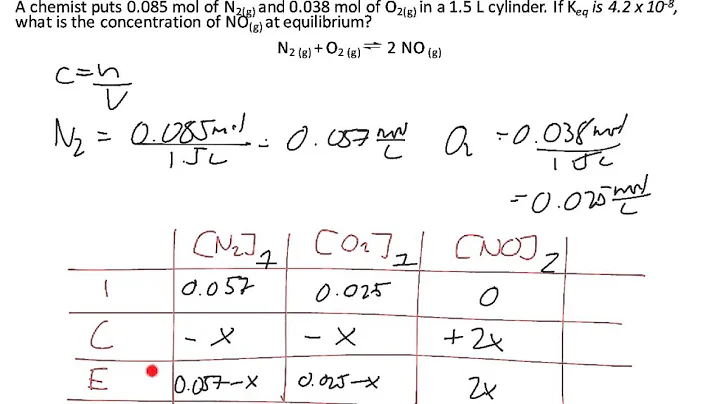 A chemist puts 0.085 mol of N2(g) and 0.038 mol of O2(g) in a 1.5 L cylinder. If Keq is 4.2 x 10-8,
what is the concentration of NO(g) at equilibrium?
N2 (g) + O2 (g) ⇌ 2 NO (g)
C = n/V
N2 = 0.085mol/1.5L = 0.057 mol/L O2 = 0.038mol/1.5L
= 0.025 mol/L
[N2]1 [O2]1 [NO]2
I 0.057 0.025 0
C - x - x + 2x
E 0.057-x 0.025-x 2x